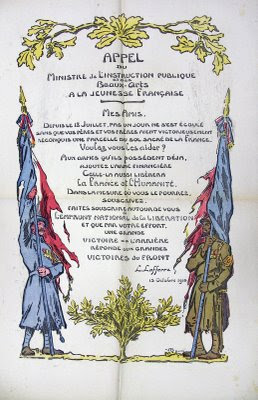 APPEL
DU
MINISTRE DE L'INSTRUCTION PUBLIQUE
ET DES
BEAUX-ARTS
A LA JEUNESSE FRANÇAISE
MES AMIS.
DEPUIS LE 18 JUILLET, PAS UN JOUR NE S'EST ÉCOULÉ
SANS QUE VOS PÈRES ET VOS FRÈRES AIENT VICTORIEUSEMENT
RECONQUIS UNE PARCELLE DU SOL SACRÉ DE LA FRANCE.
Voulez vous les aider ?
AUX ARMES QU'ILS POSSÈDENT DÉJA,
AJOUTEZ L'ARME FINANCIÈRE
CELLE-LÀ AUSSI LIBÉRERA
La France et l'Humanité.
DANS LA MESURE OÙ VOUS LE POURREZ,
SOUSCRIVEZ.
FAITES SOUSCRIRE AUTOUR DE VOUS
L'EMPRUNT NATIONAL de la LIBÉRATION
ET QUE PAR VOTRE EFFORT,
UNE GRANDE
VICTOIRE DE L'ARRIÈRE
RÉPONDE AUX GRANDES
VICTOIRES DU FRONT
L. Lafferre
15 Octobre 1918